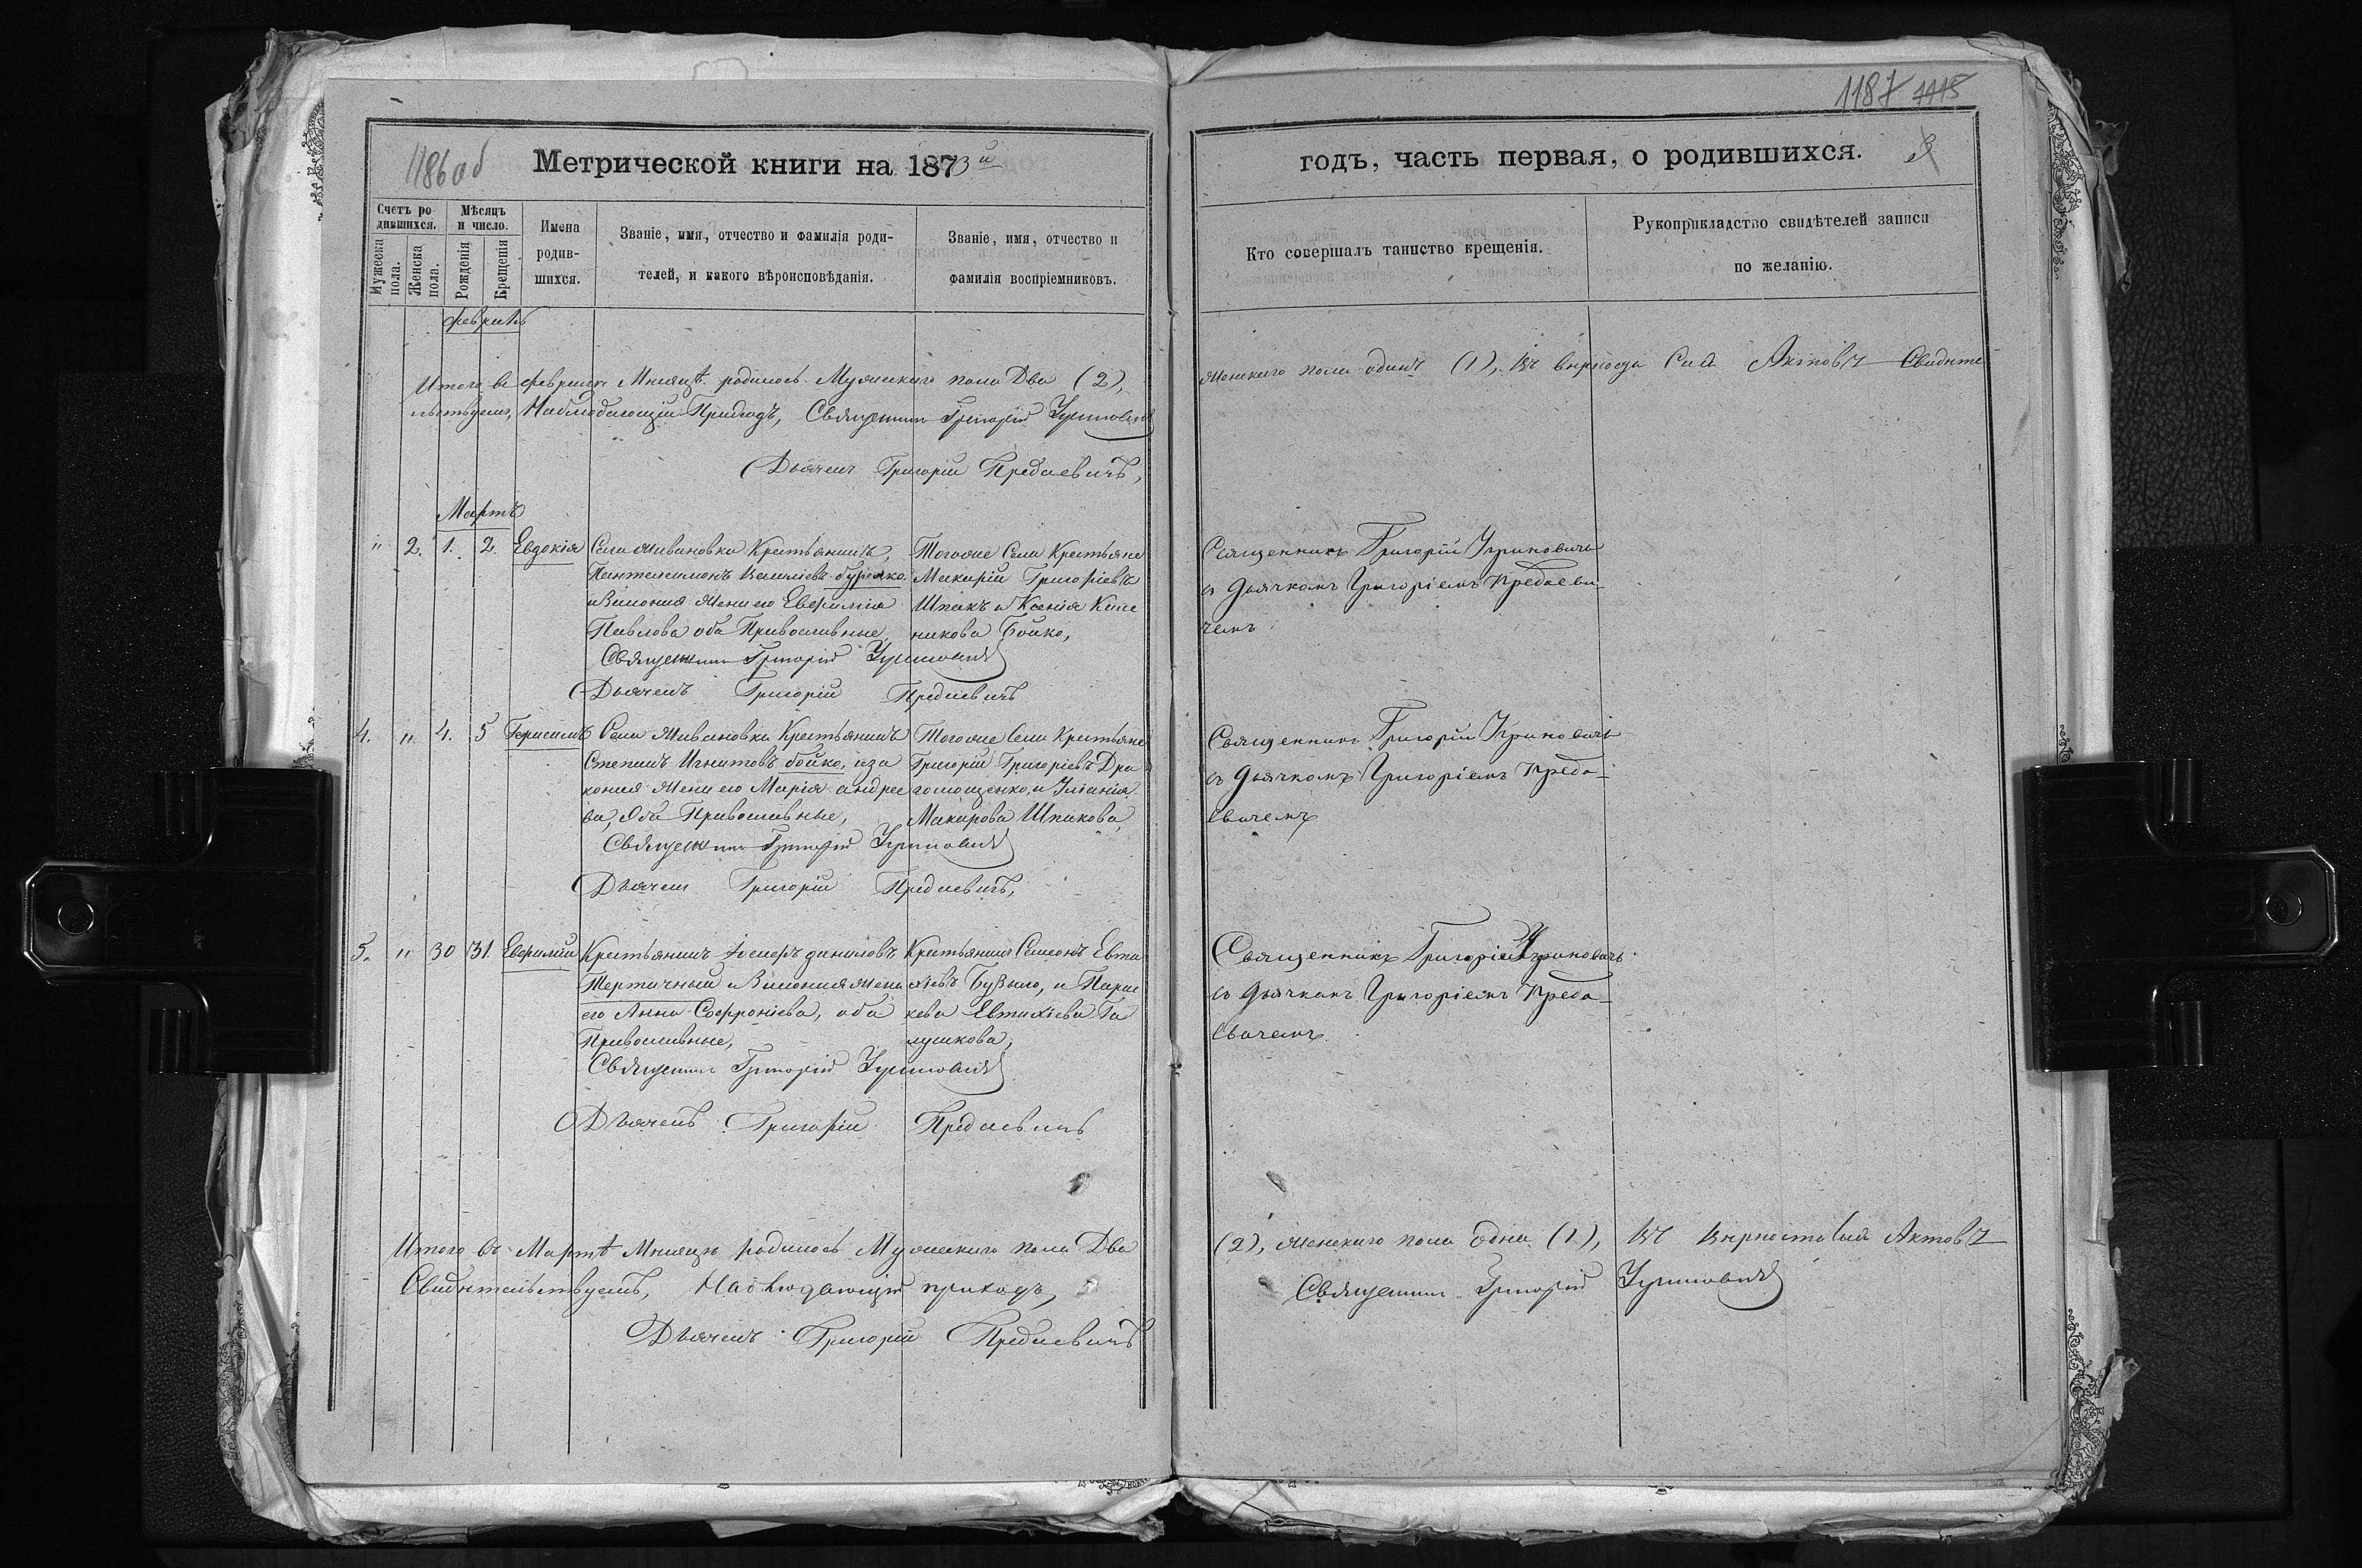 1186об
1187 1115
Метрической книги на 1873й
годъ, часть первая, о родившихся.
3
Счетъ родившихся.
Мужеска пола.
Женска пола.
Мѣсяцъ и число.
Рожденія
Крещенія
Имена родившихся.
Званіе, имя, отчество и фамилія родителей, и какого вѣроисповѣданія.
Званіе, имя, отчество и фамилія воспріемниковъ.
Кто совершалъ таинство крещенія.
Рукоприкладство свидѣтелей записи по желанію.
февраль
Итого въ февралѣ Мѣсяцѣ родилось Мужескаго пола Два (2),
женскаго пола одинъ (1), въ вѣрности Сихъ Актовъ Свидѣте
льствуемъ, Наблюдающій Приходъ, Священникъ Григорій Угриновичъ
Дьячекъ Григорій Предаевичъ,
Мартъ
" 2. 1. 2. Евдокія
Села Ивановки Крестьянинъ,
Пантелеимонъ Василіевъ
законная жена его Евфимія
Павлова оба Православные,
Тогоже Села Крестьяне
Макарій Григоріевъ
Шпакъ и Ксенія
никова Бойко,
Священникъ Григорій Угриновичъ
съ дьячкомъ Григоріемъ Предаеви
чемъ
Священникъ Григорій Угриновичъ
Дьячекъ Григорій Предаевичъ
4. " 4. 5 Герасимъ
Села Ивановки Крестьянинъ
Степанъ Игнатовъ бойко, иза
конная жена его Марія андрее
ва, Оба Православные,
Тогоже Села Крестьяне
Григорій Григоріевъ Дра
гомощенко, и Уліанія
Макарова Шпакова,
Священникъ Григорій Угриновичъ
съ дьячкомъ Григоріемъ Преда-
евичемъ
Священникъ Григорій Угриновичъ
Дьячекъ Григорій Предаевичъ,
5. " 30 31. Евфимій
Крестьянинъ Іосифъ даниловъ
Тертичный и Законная жена
его Анна Софроніева, оба
Православные,
Крестьянинъ Симеонъ Евти
хіевъ Бузыло, и Парас
кева Евтихіева Га
лушкова,
Священникъ Григорій Угриновичъ
съ дьячкомъ Григоріемъ Преда-
евичемъ
Священникъ Григорій Угриновичъ
Дьячекъ Григорій Предаевичъ
Итого въ Мартѣ Мѣсяцѣ родилось Мужескаго пола Два
(2), женскаго пола одна (1), въ вѣрности Сихъ Актовъ
Свидѣтельствуемъ, Наблюдающій приходъ,
Священникъ Григорій Угриновичъ
Дьячекъ Григорій Предаевичъ